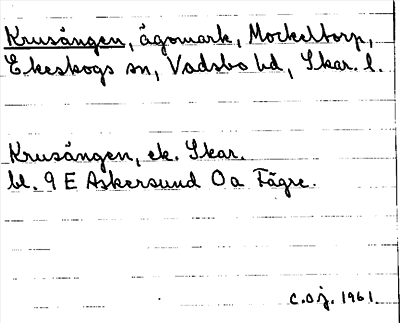 Krusängen, ägomark, Mockeltorp,
Ekeskogs sn, Vadsbo hd, Skar. l.
Krusängen, ek. Skar.
bl. 9 E Askersund O a Fägre.
C. Oj. 1961.